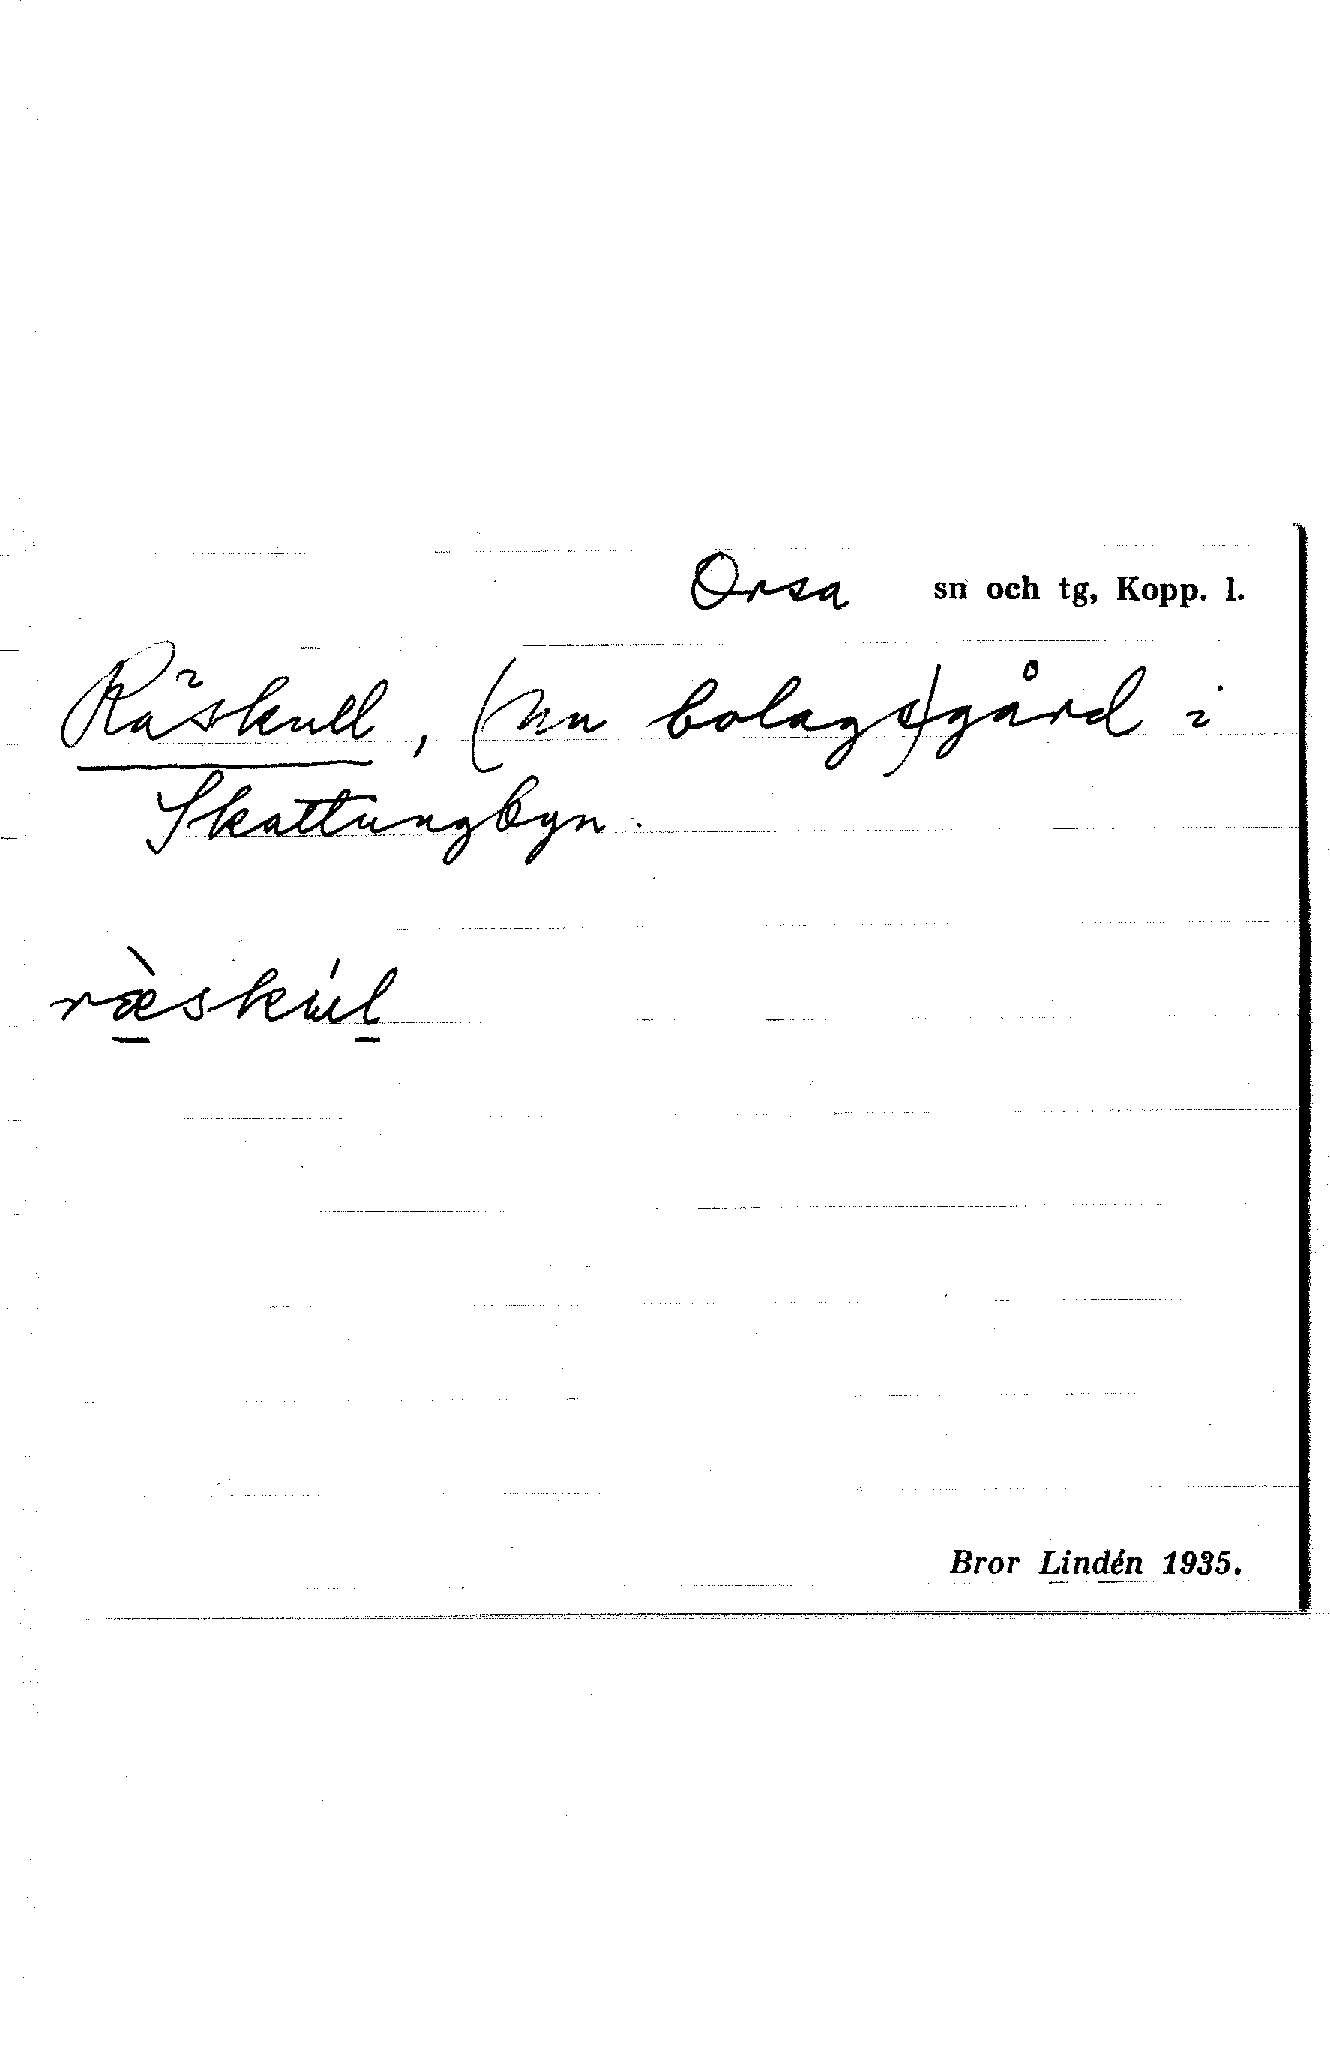 Orsa sn och tg, Kopp. l.
Räskull, (nu bolags)gård i
Skattungbyn.
ræ̀skúl
Bror Lindén 1935.